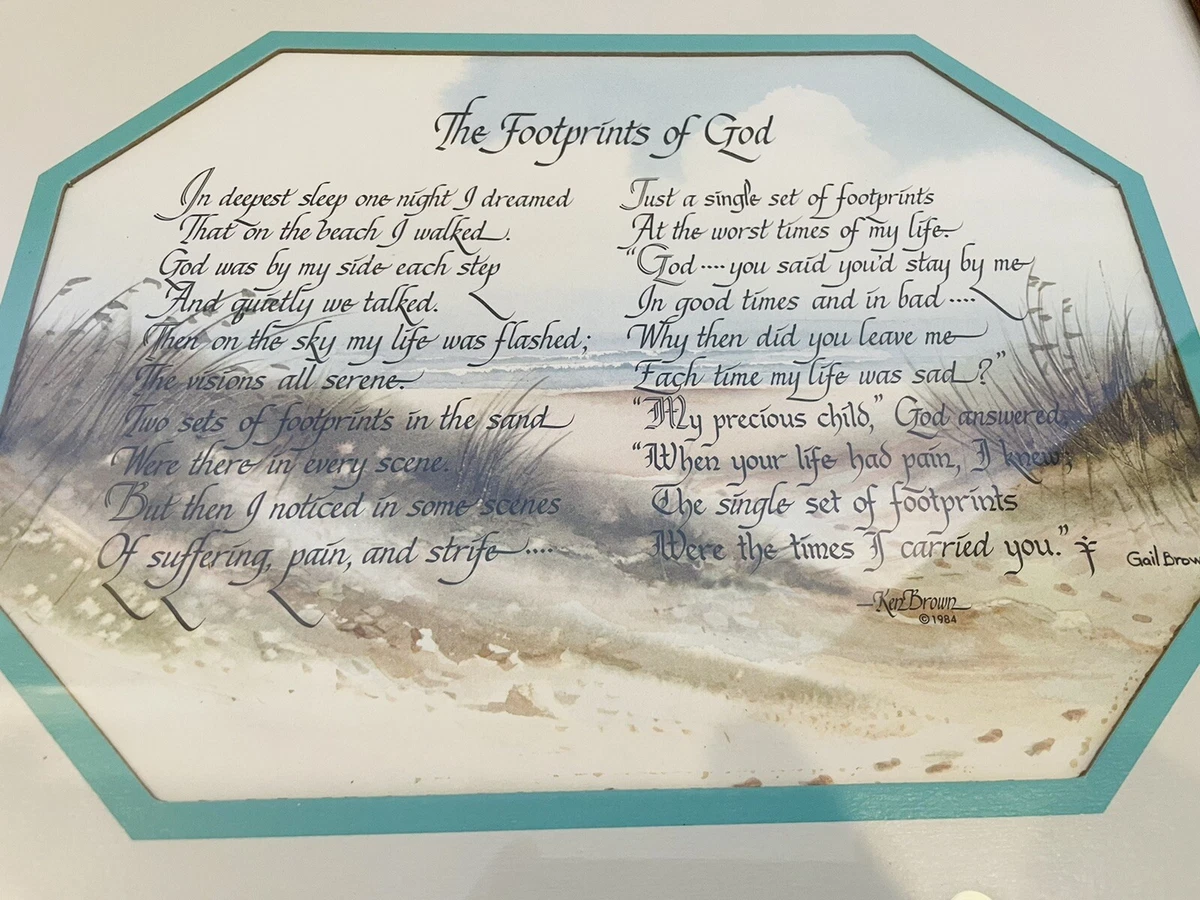 The Footprints of God
In deepest sleep one night I dreamed
That on the beach I walked.
God was by my side each step
And quietly we talked.
Then on the sky my life was flashed;
The visions all serene.
Two sets of footprints in the sand
Were there in every scene.
But then I noticed in some scenes
Of suffering, pain, and strife....
Just a single set of footprints
At the worst times of my life.
“God....you said you'd stay by me
In good times and in bad....
Why then did you leave me
Each time my life was sad?”
“My precious child,” God answered,
“When your life had pain, I knew;
The single set of footprints
Were the times I carried you.”
—Ken Brown
©1984
Gail Brow